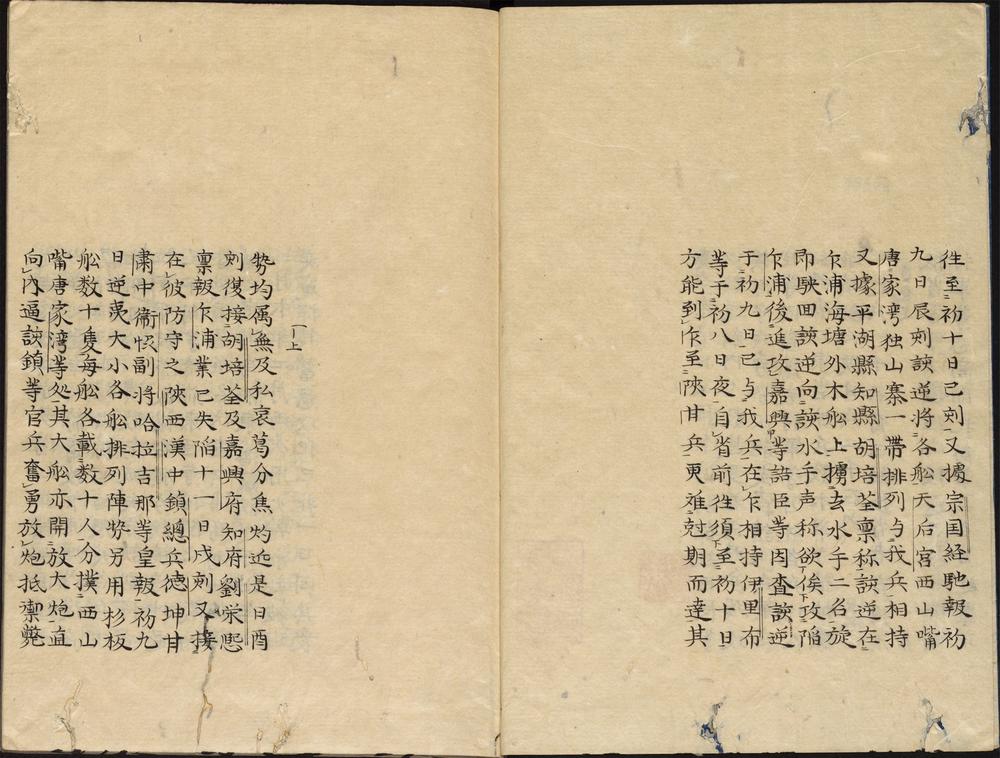 徃至初十日巳刻又據宗国経馳報初
九日辰刻該逆將各舩天后宮西山嘴
唐家湾独山寨一帶排列与我兵相持
又據平湖縣知縣胡培荃禀称該逆在
乍浦海塘外木舩上擄去水手二名旋
即駛回該逆向該水手声称欲俟攻陥
乍浦後進攻嘉興等語臣等因査該逆
于初九日已与我兵在乍相持伊里布
等于初八日夜自省前徃須至初十日
方能到乍至陝甘兵更难尅期而達其
勢均属無及私哀葛分焦灼近是日酉
刻復接胡培荃及嘉興府知府劉栄熈
禀報乍浦業已失陥十一日戌刻又接
在彼防守之陝西漢中鎮總兵德坤甘
肅中衞恊副將哈拉吉那等皇報初九
日逆夷大小各舩排列陣勢另用杉板
舩数十隻每舩各載数十人分撲西山
嘴唐家湾等処其大舩亦開放大炮直
向内逼該鎮等官兵奮勇放炮抵禦斃
上